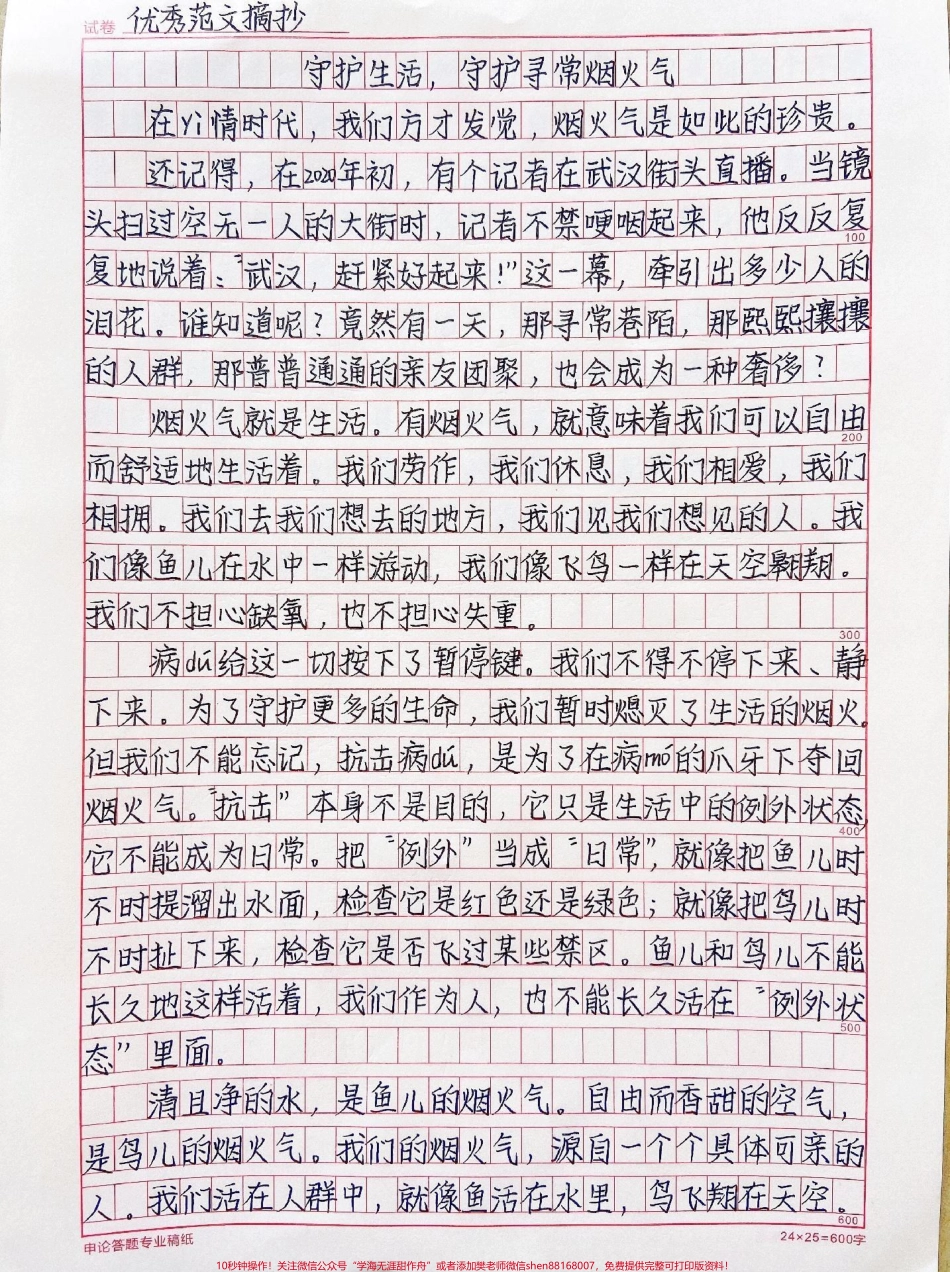 试卷 优秀范文摘抄
守护生活，守护寻常烟火气
在yì情时代，我们方才发觉，烟火气是如此的珍贵。
还记得，在2020年初，有个记者在武汉街头直播。当镜
头扫过空无一人的大街时，记者不禁哽咽起来，他反反复
100
复地说着：“武汉，赶紧好起来！”这一幕，牵引出多少人的
泪花。谁知道呢？竟然有一天，那寻常巷陌，那熙熙攘攘
的人群，那普普通通的亲友团聚，也会成为一种奢侈？
烟火气就是生活。有烟火气，就意味着我们可以自由
200
而舒适地生活着。我们劳作，我们休息，我们相爱，我们
相拥。我们去我们想去的地方，我们见我们想见的人。我
们像鱼儿在水中一样游动，我们像飞鸟一样在天空翱翔。
我们不担心缺氧，也不担心失重。
300
病dú给这一切按下了暂停键。我们不得不停下来、静
下来。为了守护更多的生命，我们暂时熄灭了生活的烟火。
但我们不能忘记，抗击病dú，是为了在病mó的爪牙下夺回
烟火气。“抗击”本身不是目的，它只是生活中的例外状态，
400
它不能成为日常。把“例外”当成“日常”，就像把鱼儿时
不时提溜出水面，检查它是红色还是绿色；就像把鸟儿时
不时扯下来，检查它是否飞过某些禁区。鱼儿和鸟儿不能
长久地这样活着，我们作为人，也不能长久活在“例外状
500
态”里面。
清且净的水，是鱼儿的烟火气。自由而香甜的空气，
是鸟儿的烟火气。我们的烟火气，源自一个个具体可亲的
人。我们活在人群中，就像鱼活在水里，鸟飞翔在天空。
600
申论答题专业稿纸 24×25=600字
10秒钟操作！关注微信公众号“学海无涯甜作舟”或者添加樊老师微信shen88168007，免费提供完整可打印版资料！